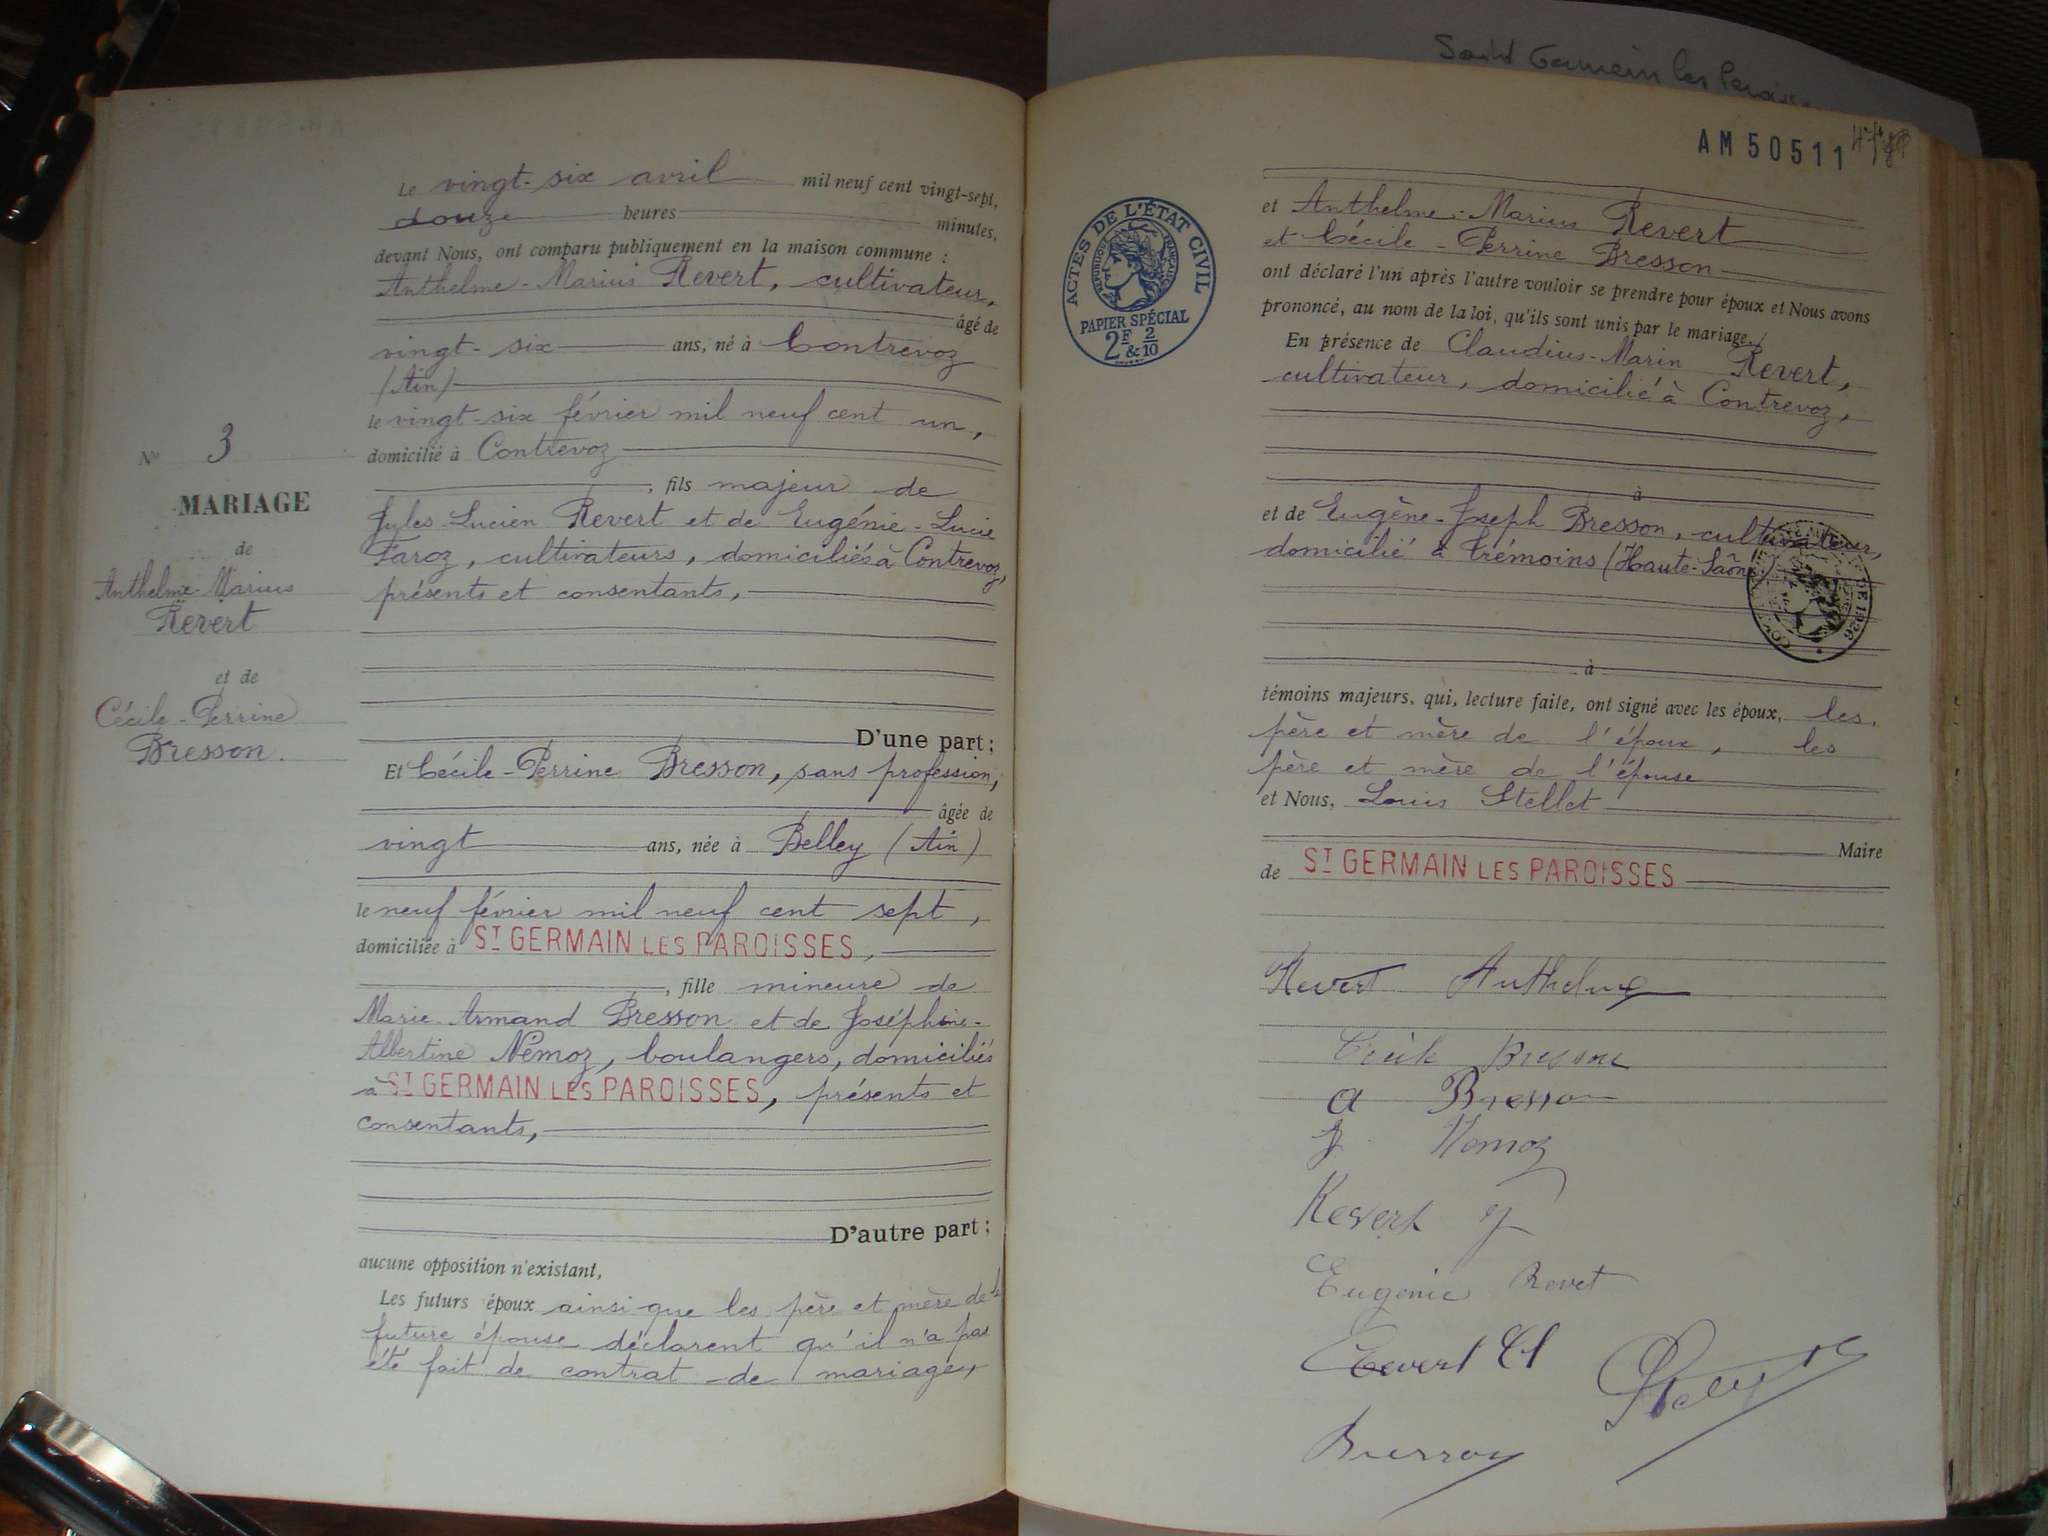 Saint Germain les Paroisses
N° 3
MARIAGE
de
Anthelme-Marius
Revert
et de
Cécile-Perrine
Bresson.
Le vingt-six avril mil neuf cent vingt-sept,
douze heures minutes,
devant Nous, ont comparu publiquement en la maison commune :
Anthelme-Marius Revert, cultivateur,
âgé de
vingt-six ans, né à Contrevoz
(Ain)
le vingt-six février mil neuf cent un,
domicilié à Contrevoz
, fils majeur de
Jules-Lucien Revert et de Eugénie-Lucie
Faroz, cultivateurs, domiciliés à Contrevoz,
présents et consentants,
D'une part ;
Et Cécile-Perrine Bresson, sans profession,
âgée de
vingt ans, née à Belley (Ain)
le neuf février mil neuf cent sept,
domiciliée à ST GERMAIN LES PAROISSES,
, fille mineure de
Marie-Armand Bresson et de Joséphine-
Albertine Némoz, boulangers, domiciliés
à ST GERMAIN LES PAROISSES, présents et
consentants,
D'autre part ;
aucune opposition n'existant,
Les futurs époux ainsi que les père et mère de la
future épouse déclarent qu'il n'a pas
été fait de contrat de mariage,
AM 50511
ACTES DE L'ÉTAT CIVIL
RÉPUBLIQUE FRANÇAISE
PAPIER SPÉCIAL
2F & 2/10
et Anthelme-Marius Revert
et Cécile-Perrine Bresson
ont déclaré l'un après l'autre vouloir se prendre pour époux et Nous avons
prononcé, au nom de la loi, qu'ils sont unis par le mariage.
En présence de Claudius-Marin Revert,
cultivateur, domicilié à Contrevoz,
à
et de Eugène-Joseph Bresson, cultivateur,
domicilié à Trémoins (Haute-Saône)
DE 1926
à
témoins majeurs, qui, lecture faite, ont signé avec les époux, les
père et mère de l'époux, les
père et mère de l'épouse
et Nous, Louis Stellet
Maire
de ST GERMAIN LES PAROISSES
Revert Anthelme
Cécile Bresson
a Bresson
J. Nemoz
Revert J
Eugenie Revet
Revert Cl
Bresson